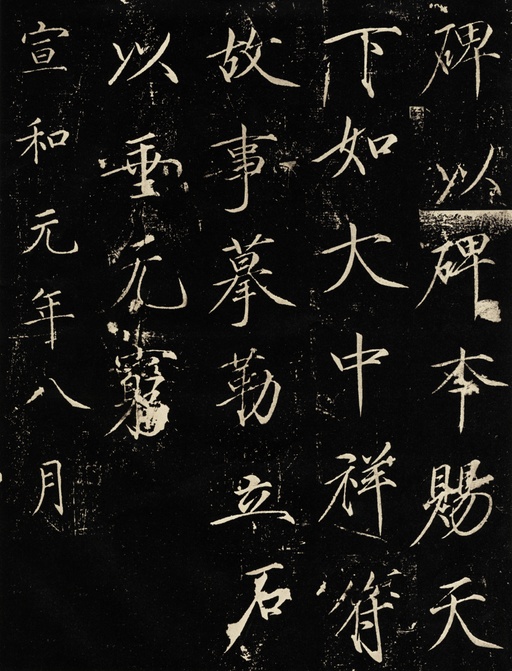 碑以碑本賜天
下如大中祥符
故事摹勒立石
以垂無窮
宣和元年八月